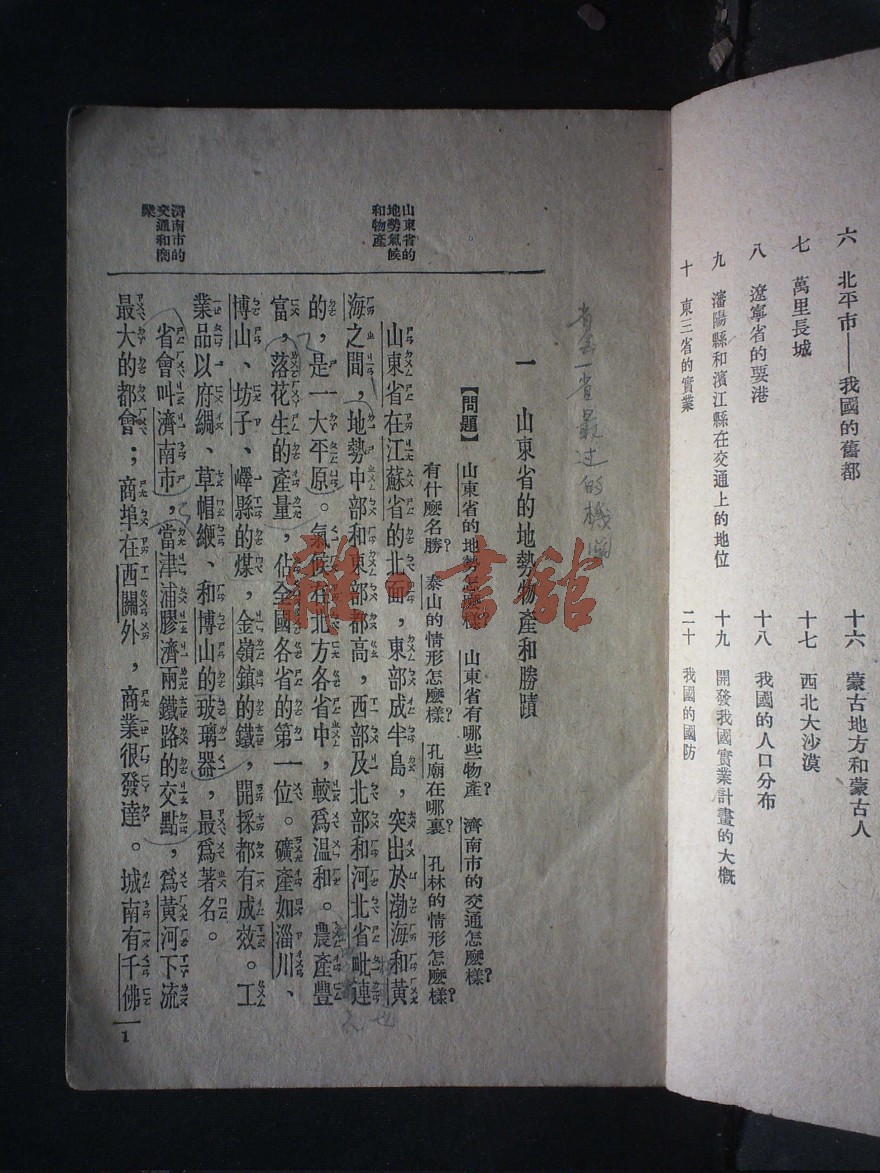 六　北平市——我國的舊都
七　萬里長城
八　遼寧省的要港
九　瀋陽縣和濱江縣在交通上的地位
十　東三省的實業
十六　蒙古地方和蒙古人
十七　西北大沙漠
十八　我國的人口分布
十九　開發我國實業計畫的大概
二十　我國的國防
省會一省最
的機
一　山東省的地勢物產和勝蹟
【問題】　山東省的地勢怎麼樣？　山東省有哪些物產？　濟南市的交通怎麼樣？
有什麼名勝？　泰山的情形怎麼樣？　孔廟在哪裏？　孔林的情形怎麼樣？
山東省的
地勢氣候
和物產
山東省在江蘇省的北面，東部成半島，突出於渤海和黃
海之間，地勢中部和東部都高，西部及北部和河北省毗連
的，是一大平原。氣候在北方各省中，較爲温和。農產豐
富，落花生的產量，佔全國各省的第一位。礦產如淄川、
博山、坊子、嶧縣的煤，金嶺鎮的鐵，開採都有成效。工
業品以府綢、草帽緶、和博山的玻璃器，最爲著名。
濟南市的
交通和商
業
省會叫濟南市，當津浦膠濟兩鐵路的交點，爲黃河下流
最大的都會；商埠在西關外，商業很發達。城南有千佛
1
雜·書館